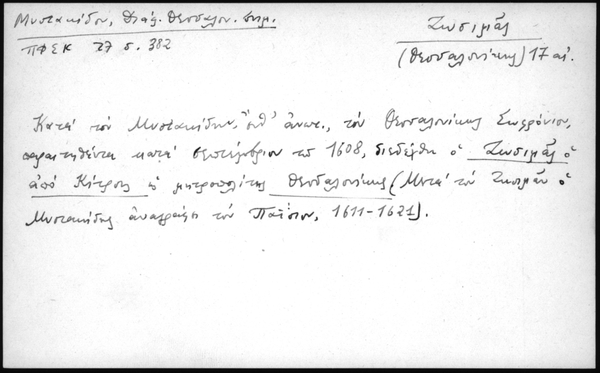 Μυστακίδου, Διάφ. Θεσσαλον. σημ.
ΠΦΣΚ 27 σ. 382
Ζωσιμᾶς
(Θεσσαλονίκης) 17 αἰ.
Κατά τόν Μυστακίδην, ἔνθ' ἀνωτ., τόν Θεσσαλονίκης Σωφρόνιον,
παραιτηθέντα κατά σεπτέμβριον τοῦ 1608, διεδέχθη ὁ Ζωσιμᾶς ὁ
ἀπό Κίτρους ὁ μητροπολίτης Θεσσαλονίκης (Μετά τόν Ζωσιμᾶν ὁ
Μυστακίδης ἀναγράφει τόν Παΐσιον, 1611-1621).